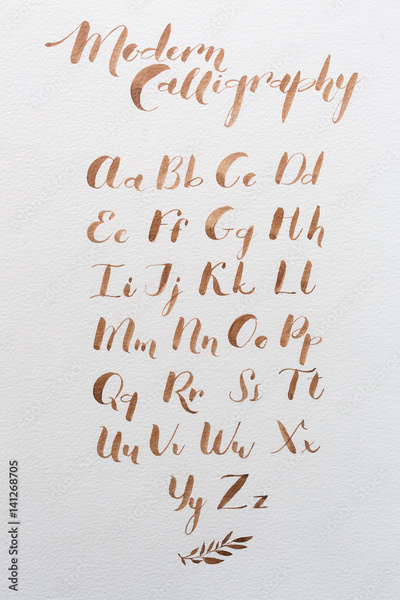 Modern
Calligraphy
Aa Bb Cc Dd
Ee Ff Gg Hh
Ii Jj Kk Ll
Mm Nn Oo Pp
Qq Rr Ss Tt
Uu Vv Ww Xx
Yy Zz
Adobe Stock | #141268705